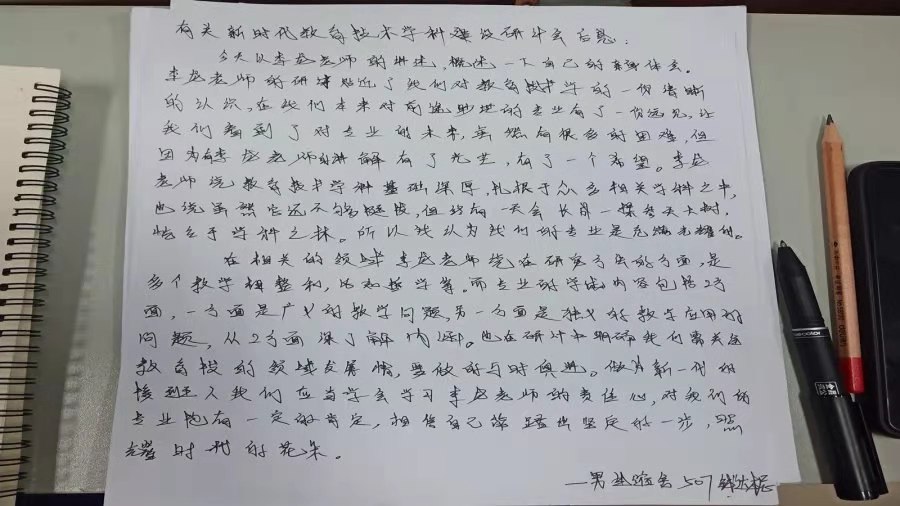 有关新时代教育技术学科建设研讨会有感:
今天以李龙老师的讲述,概述一下自己的体会。
李龙老师的研讨贴近了我们对教育技术学的一份清晰
的认识,在我们本来对前途渺茫的专业有了一份远见,让
我们看到了对专业的未来,虽然有很多的困难,但
因为有李龙老师的讲解有了光芒,有了一个希望。李龙
老师说教育技术学科基础深厚,扎根于众多相关学科之中,
也说虽然它还不够挺拔,但终有一天会长育一棵参天大树,
屹立于学科之林。所以我认为我们的专业是充满光耀的。
在相关的领域李龙老师说在研究方法的方面,是
多个教学相整和,比如哲学等。而专业的学术内容包括2方
面,一方面是广义的教学问题,另一方面是狭义的教学应用的
问题,从2方面深了解内涵。也在研讨中明确我们需关注
教育技的领域发展情,要做好与时俱进。做为新一代的
接班人我们应当学会学习李龙老师的责任心,对我们的
专业抱有一定的肯定,相信自己能踏出坚定的一步,
时代的花朵。
—男生宿舍507